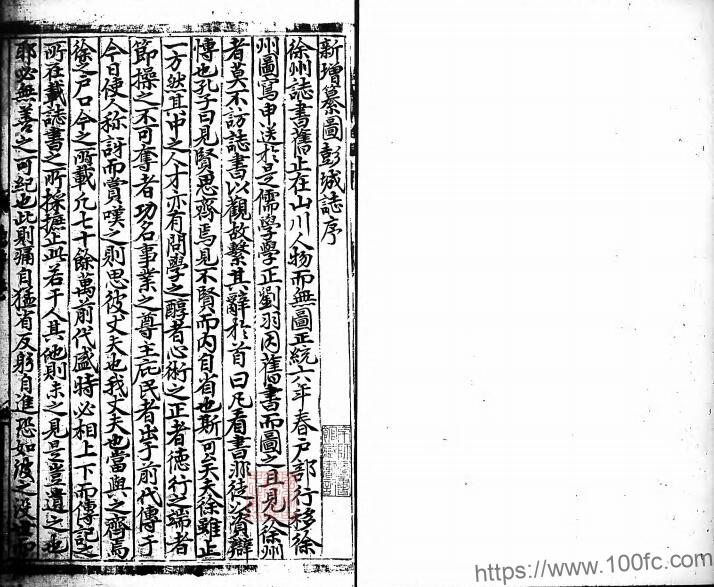 新增纂圖彭城誌序
徐州誌書舊止在山川人物而無圖正統六年春戶部行移徐
州圖寫申送於是儒學學正劉羽因舊書而圖之且見徐州
者莫不訪誌書以觀故繫其辭於首曰凡看書非徒以資辯
博也孔子曰見賢思齊焉見不賢而内自省也斯可矣夫徐雖止
一方然其中之人才亦有問學之醇者心術之正者德行之端者
節操之不可奪者功名事業之尊主庇民者出于前代傳于
今日使人称訝而賞嘆之則思彼丈夫也我丈夫也當與之齊焉
徐之戶口今之所載凡七十餘萬前代盛時必相上下而傳記之
所在載誌書之所採摭止此若干人其他則未之見是豈遺之也
耶必無善之可紀也此則痛自猛省反躬自進恐如彼之没世而
https://www.100fc.com